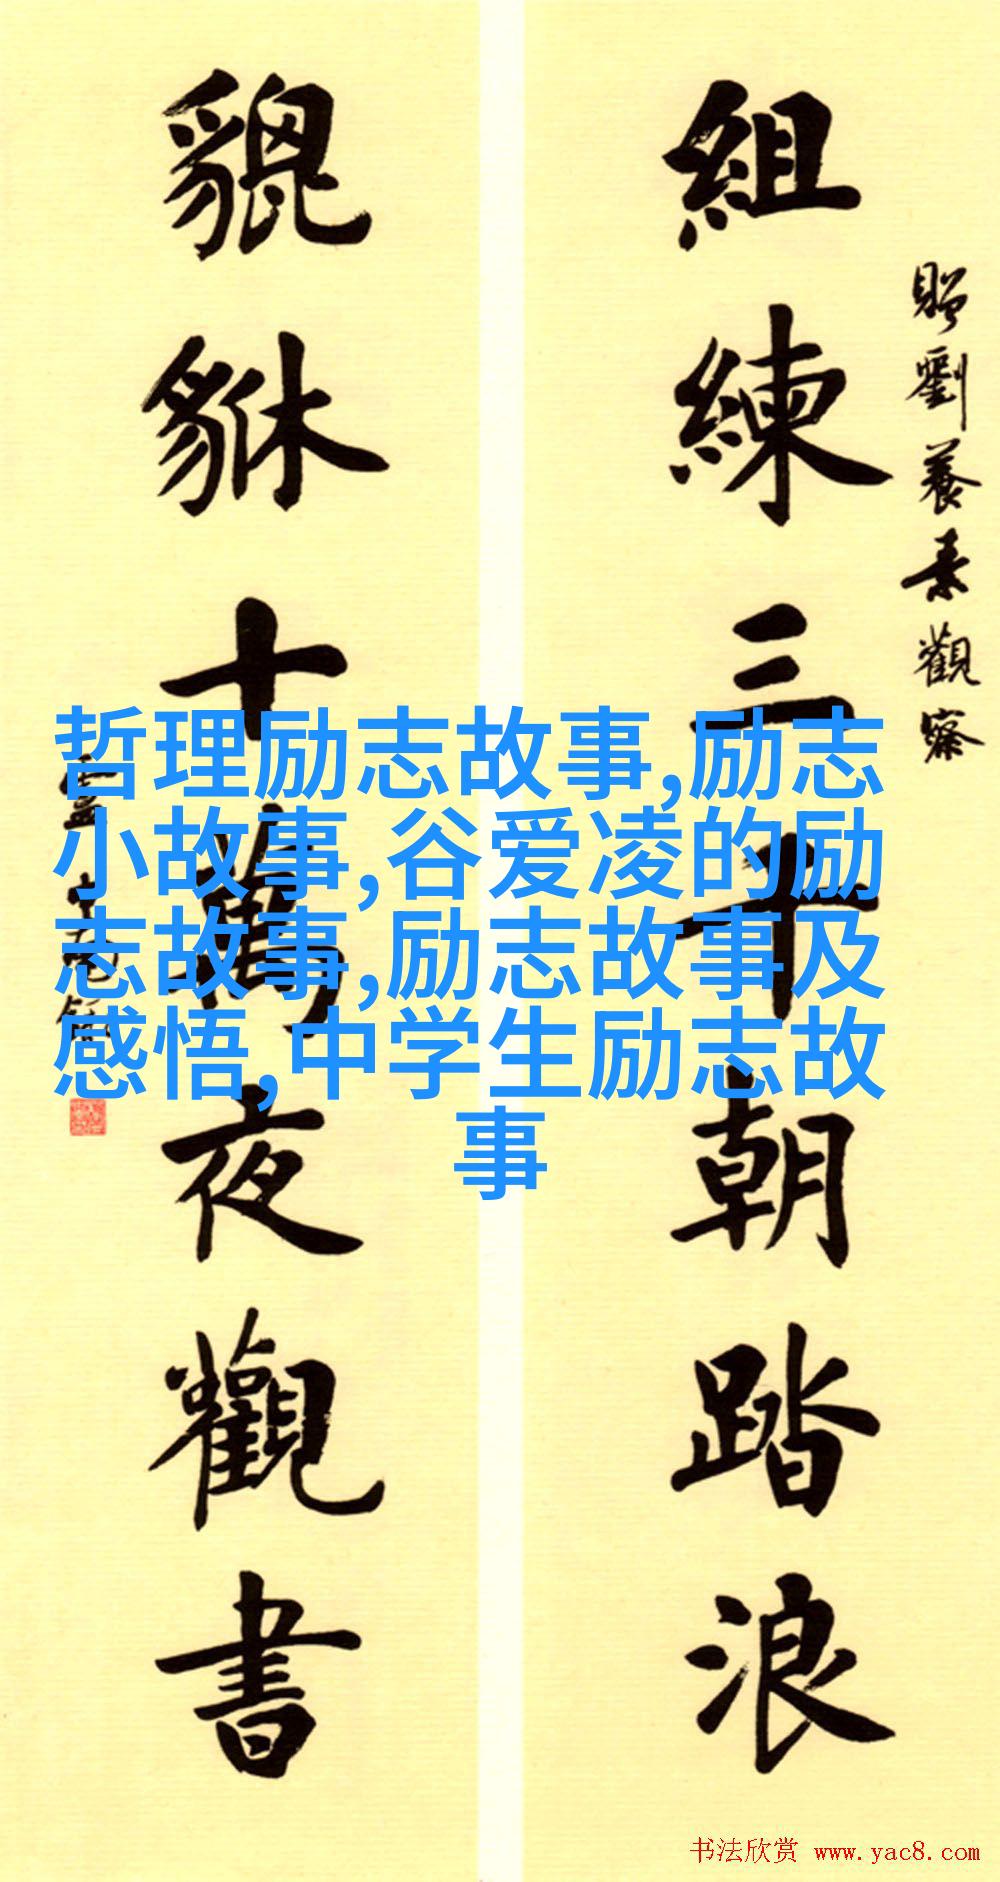 組練三十朝踏浪
貔貅十萬夜觀書
贈劉養素觀察
哲理励志故事,励志
小故事,谷爱凌的励
志故事,励志故事及
感悟,中学生励志故
事
书法欣赏 www.yac8.com